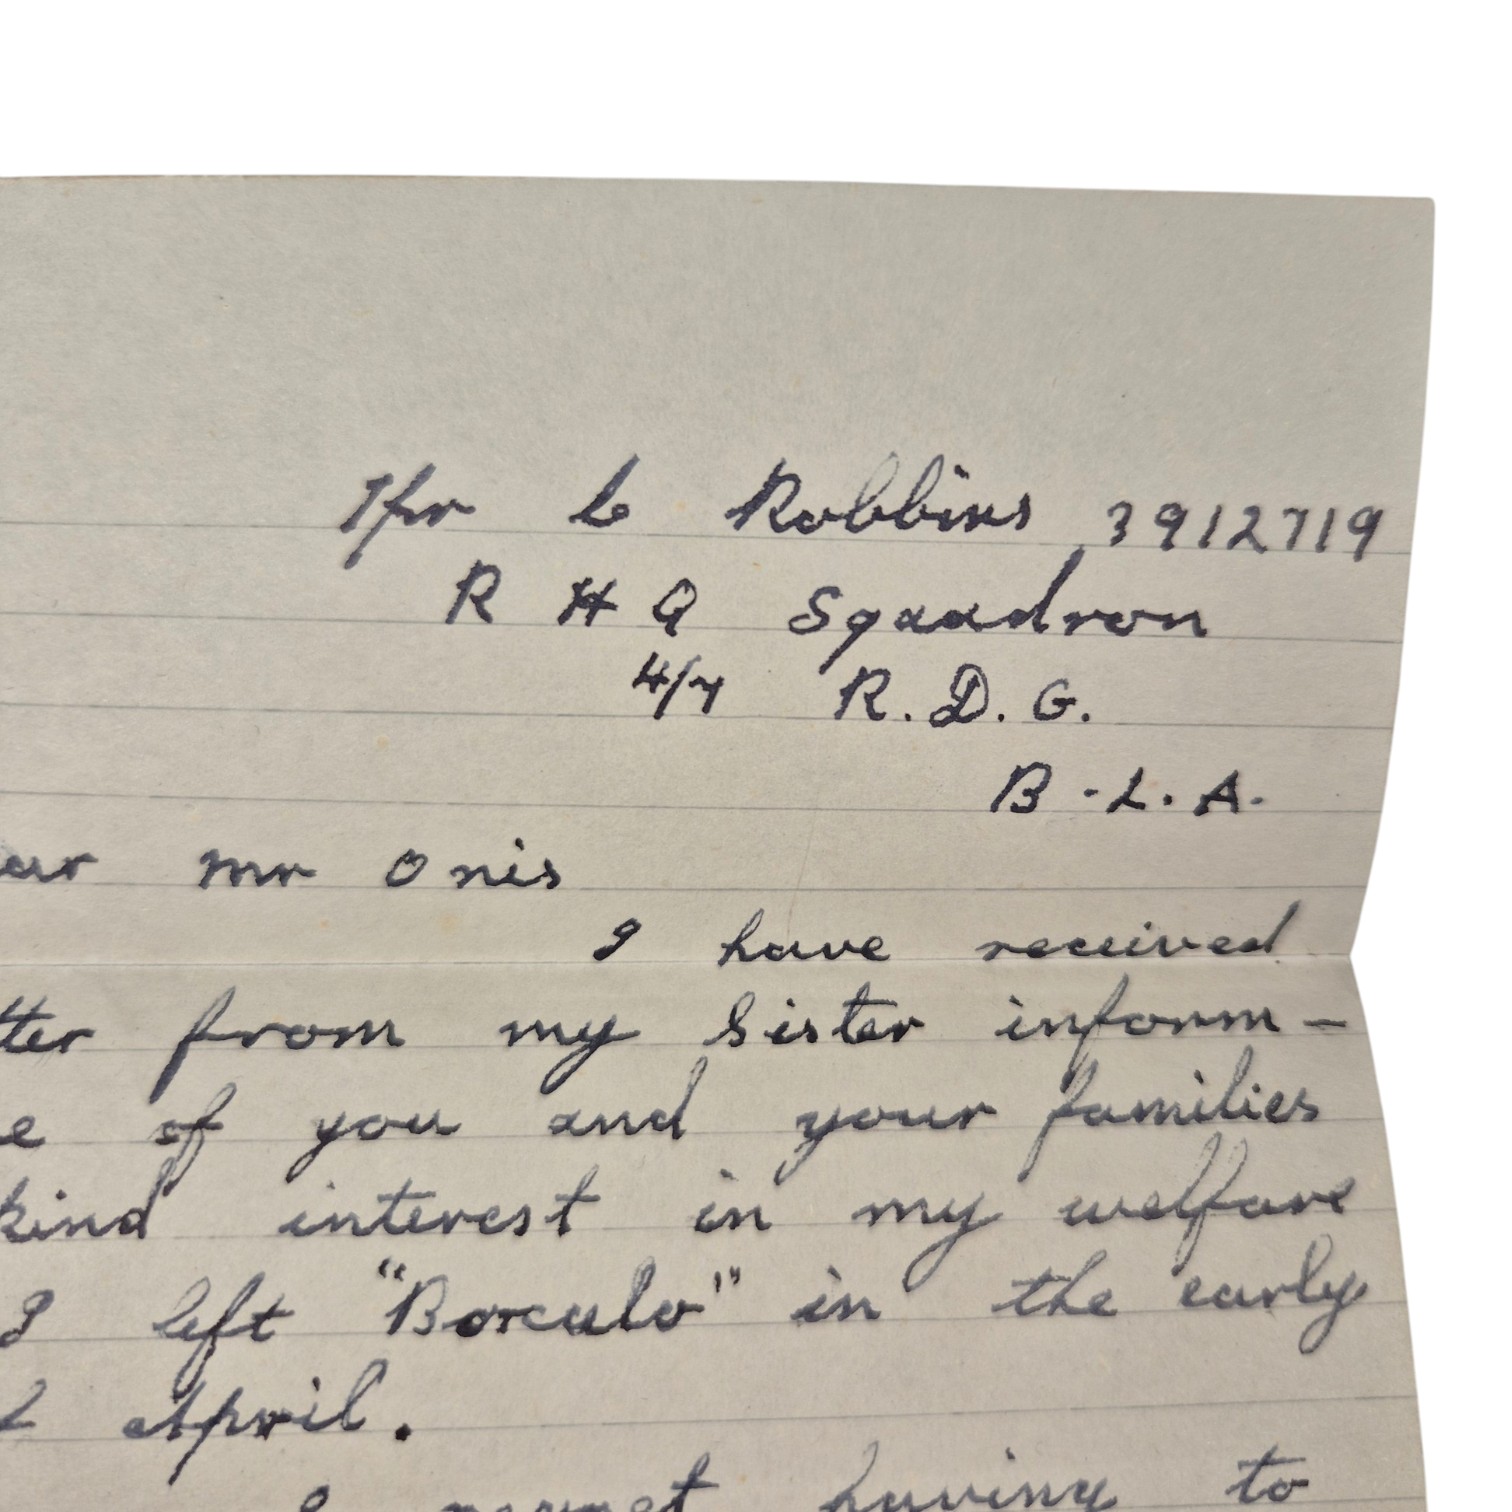 Tpr C Robbins 3912719
R H Q Squadron
4/7 R.D.G.
B.L.A.
ear Mr Onis
I have received
tter from my Sister inform-
e of you and your families
kind interest in my welfare
I left "Borculo" in the early
April.
I regret having to